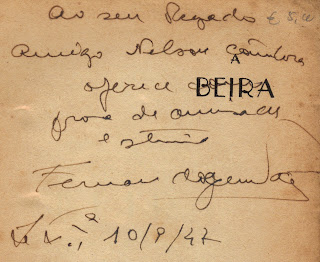 Ao seu Prezado € 5,00
Amigo Nelson
A
oferece como
BEIRA
prova de amizade
e estima
Fernando
10/9/47